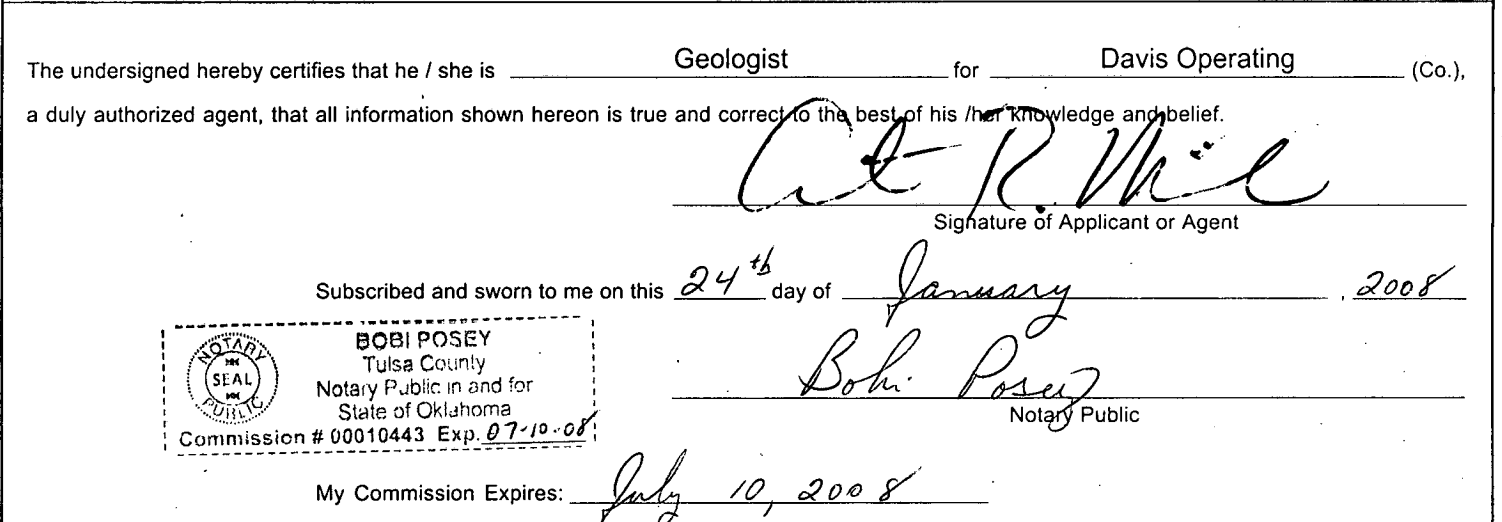 The undersigned hereby certifies that he / she is Geologist for Davis Operating (Co.),
a duly authorized agent, that all information shown hereon is true and correct to the best of his /her knowledge and belief.
R.
Signature of Applicant or Agent
Subscribed and sworn to me on this 24th day of January, 2008
NOTARY PUBLIC
SEAL
BOBI POSEY
Tulsa County
Notary Public in and for
State of Oklahoma
Commission # 00010443 Exp. 07-10-08
Bobi Posey
Notary Public
My Commission Expires: July 10, 2008